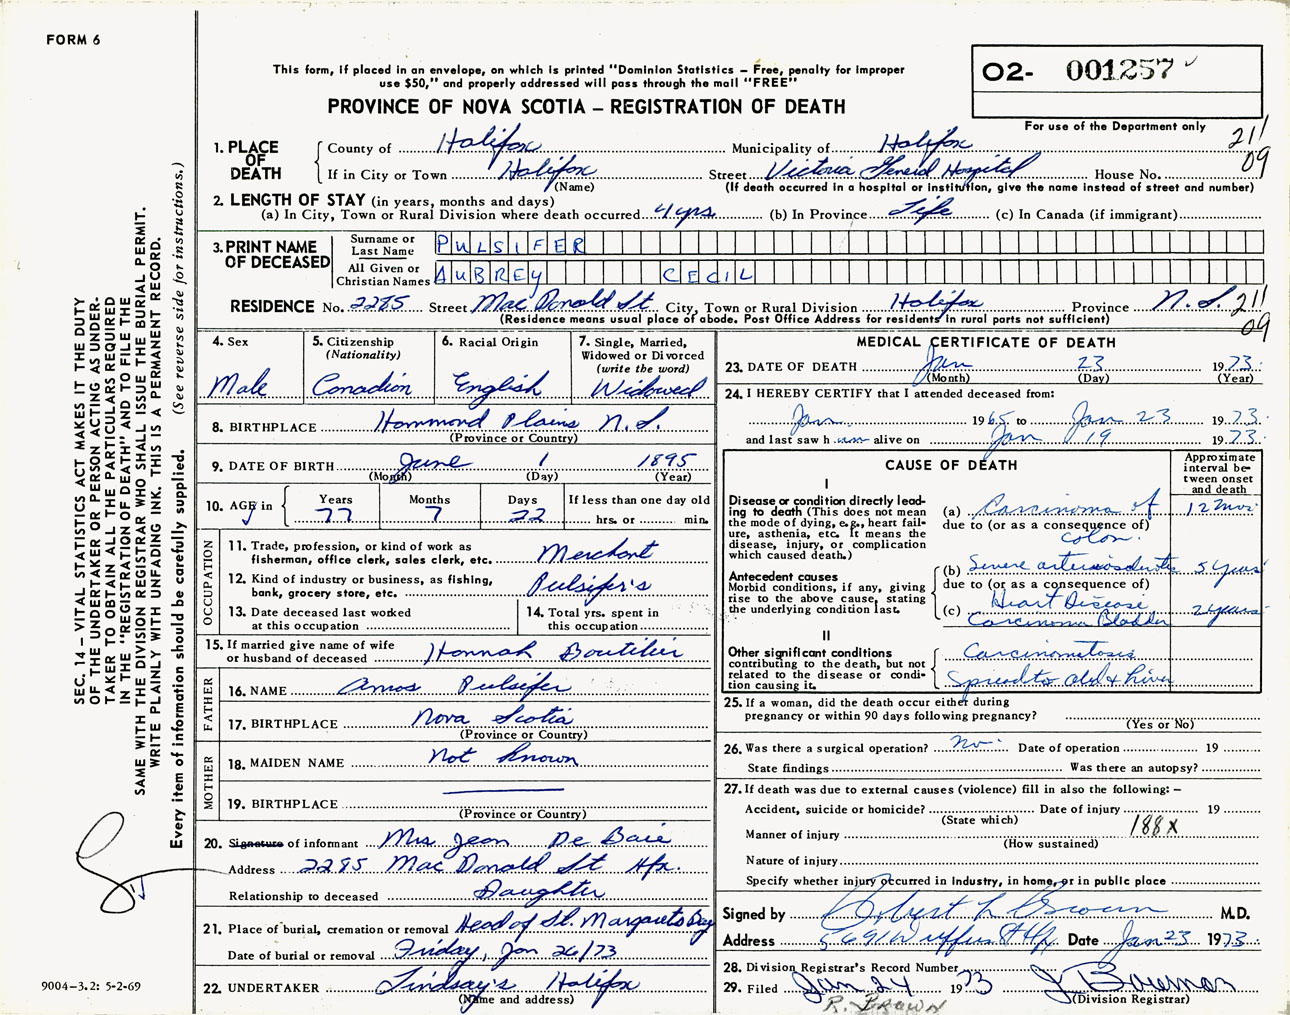 FORM 6
This form, if placed in an envelope, on which is printed "Dominion Statistics – Free, penalty for improper
use $50," and properly addressed will pass through the mail "FREE"
PROVINCE OF NOVA SCOTIA – REGISTRATION OF DEATH
02- 001257
For use of the Department only
211
09
1. PLACE OF DEATH
County of Halifax Municipality of Halifax
If in City or Town Halifax Street Victoria General Hospital House No.
(Name) (If death occurred in a hospital or institution, give the name instead of street and number)
2. LENGTH OF STAY (in years, months and days)
(a) In City, Town or Rural Division where death occurred 4 yrs. (b) In Province Life (c) In Canada (if immigrant)
3. PRINT NAME OF DECEASED
Surname or Last Name PULSIFER
All Given or Christian Names AUBREY CECIL
RESIDENCE No. 2285 Street MacDonald St City, Town or Rural Division Halifax Province N.S.
211
09
(Residence means usual place of abode. Post Office Address for residents in rural parts not sufficient)
4. Sex
Male
5. Citizenship
(Nationality)
Canadian
6. Racial Origin
English
7. Single, Married,
Widowed or Divorced
(write the word)
Widowed
8. BIRTHPLACE Hammond Plains N.S.
(Province or Country)
9. DATE OF BIRTH June 1 1895
(Month) (Day) (Year)
10. AGE in
Years Months Days If less than one day old
77 7 22 hrs. or min.
OCCUPATION
11. Trade, profession, or kind of work as
fisherman, office clerk, sales clerk, etc. Merchant
12. Kind of industry or business, as fishing,
bank, grocery store, etc. Pulsifer's
13. Date deceased last worked
at this occupation
14. Total yrs. spent in
this occupation
15. If married give name of wife
or husband of deceased Hannah Boutilier
FATHER
16. NAME Amos Pulsifer
17. BIRTHPLACE Nova Scotia
(Province or Country)
MOTHER
18. MAIDEN NAME Not Known
19. BIRTHPLACE
(Province or Country)
20. Signature of informant Mrs Jean De Baie
Address 2285 MacDonald St Hfx.
Relationship to deceased Daughter
21. Place of burial, cremation or removal Head of St. Margarets Bay
Date of burial or removal Friday, Jan 26/73
22. UNDERTAKER Lindsay's Halifax
(Name and address)
MEDICAL CERTIFICATE OF DEATH
23. DATE OF DEATH Jan 23 1973.
(Month) (Day) (Year)
24. I HEREBY CERTIFY that I attended deceased from:
Jan. 1965 to Jan 23 1973.
and last saw h im alive on Jan 19 1973.
CAUSE OF DEATH
Approximate
interval be-
tween onset
and death
I
Disease or condition directly lead-
ing to death (This does not mean
the mode of dying, e.g., heart fail-
ure, asthenia, etc. It means the
disease, injury, or complication
which caused death.)
(a) Carcinoma of 12 mos
due to (or as a consequence of)
colon.
Antecedent causes
Morbid conditions, if any, giving
rise to the above cause, stating
the underlying condition last.
(b) Severe arteriosclerotic 5 years
due to (or as a consequence of)
Heart Disease
(c) Carcinoma Bladder 2 years
II
Other significant conditions
contributing to the death, but not
related to the disease or condi-
tion causing it.
Carcinomatosis
Spread to abd & liver
25. If a woman, did the death occur either during
pregnancy or within 90 days following pregnancy?
(Yes or No)
26. Was there a surgical operation? no. Date of operation 19
State findings Was there an autopsy?
27. If death was due to external causes (violence) fill in also the following: –
Accident, suicide or homicide? Date of injury 19
(State which)
188X
Manner of injury
(How sustained)
Nature of injury
Specify whether injury occurred in Industry, in home, or in public place
Signed by Robert L M.D.
Address 5691 Hfx Date Jan 23 1973.
28. Division Registrar's Record Number
29. Filed Jan 24 1973 J Bowman
(Division Registrar)
R. BROWN
SEC. 14 – VITAL STATISTICS ACT MAKES IT THE DUTY
OF THE UNDERTAKER OR PERSON ACTING AS UNDER-
TAKER TO OBTAIN ALL THE PARTICULARS REQUIRED
IN THE "REGISTRATION OF DEATH" AND TO FILE THE
SAME WITH THE DIVISION REGISTRAR WHO SHALL ISSUE THE BURIAL PERMIT.
WRITE PLAINLY WITH UNFADING INK. THIS IS A PERMANENT RECORD.
Every item of information should be carefully supplied. (See reverse side for instructions.)
9004-3.2: 5-2-69